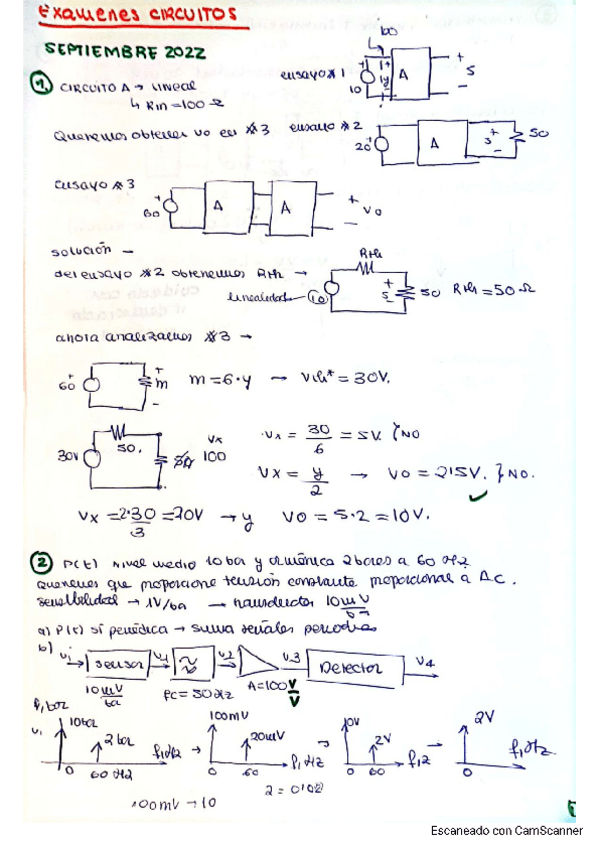 Exámenes CIRCUITOS
SEPTIEMBRE 2022
1. CIRCUITO A → Lineal
↳ Rin = 100 Ω
ensayo #1
100
10
A
+
5
-
Queremos obtener vo en #3
ensayo #2
20
A
+
5
-
50
ensayo #3
60
A
A
+
vo
-
Solución -
del ensayo #2 obtenemos Rth →
linealidad
10
Rth
+
5
-
50
Rth = 50 Ω
ahora analizamos #3 →
60
+
m
-
m = 6·y → Vth* = 30V.
30V
50.
Vx
100
·Vx = 30/6 = 5V. } NO
Vx = y/2 → Vo = 2'5V. } NO.
Vx = 2·30/3 = 20V → y Vo = 5·2 = 10V.
2 P(t) nivel medio 10 bar y armónica 2 bares a 60 Hz
queremos que proporcione tensión constante proporcional a AC.
sensibilidad → 1V/ba → transductor 10 mV/ba
a) P(t) sí periódica → suma señales periodicas
b) vi → sensor v1 → v2 → v3 → Detector v4
10 mV/ba
fc = 30 Hz
A = 100 V/V
f, bar
100mV
10V
2V
v1
10bar
2 bar
f, Hz
20mV
f, Hz
2V
f, z
f, Hz
0
60 Hz
0
60
0
60
0
2 = 0'02
100mV → 10
Escaneado con CamScanner